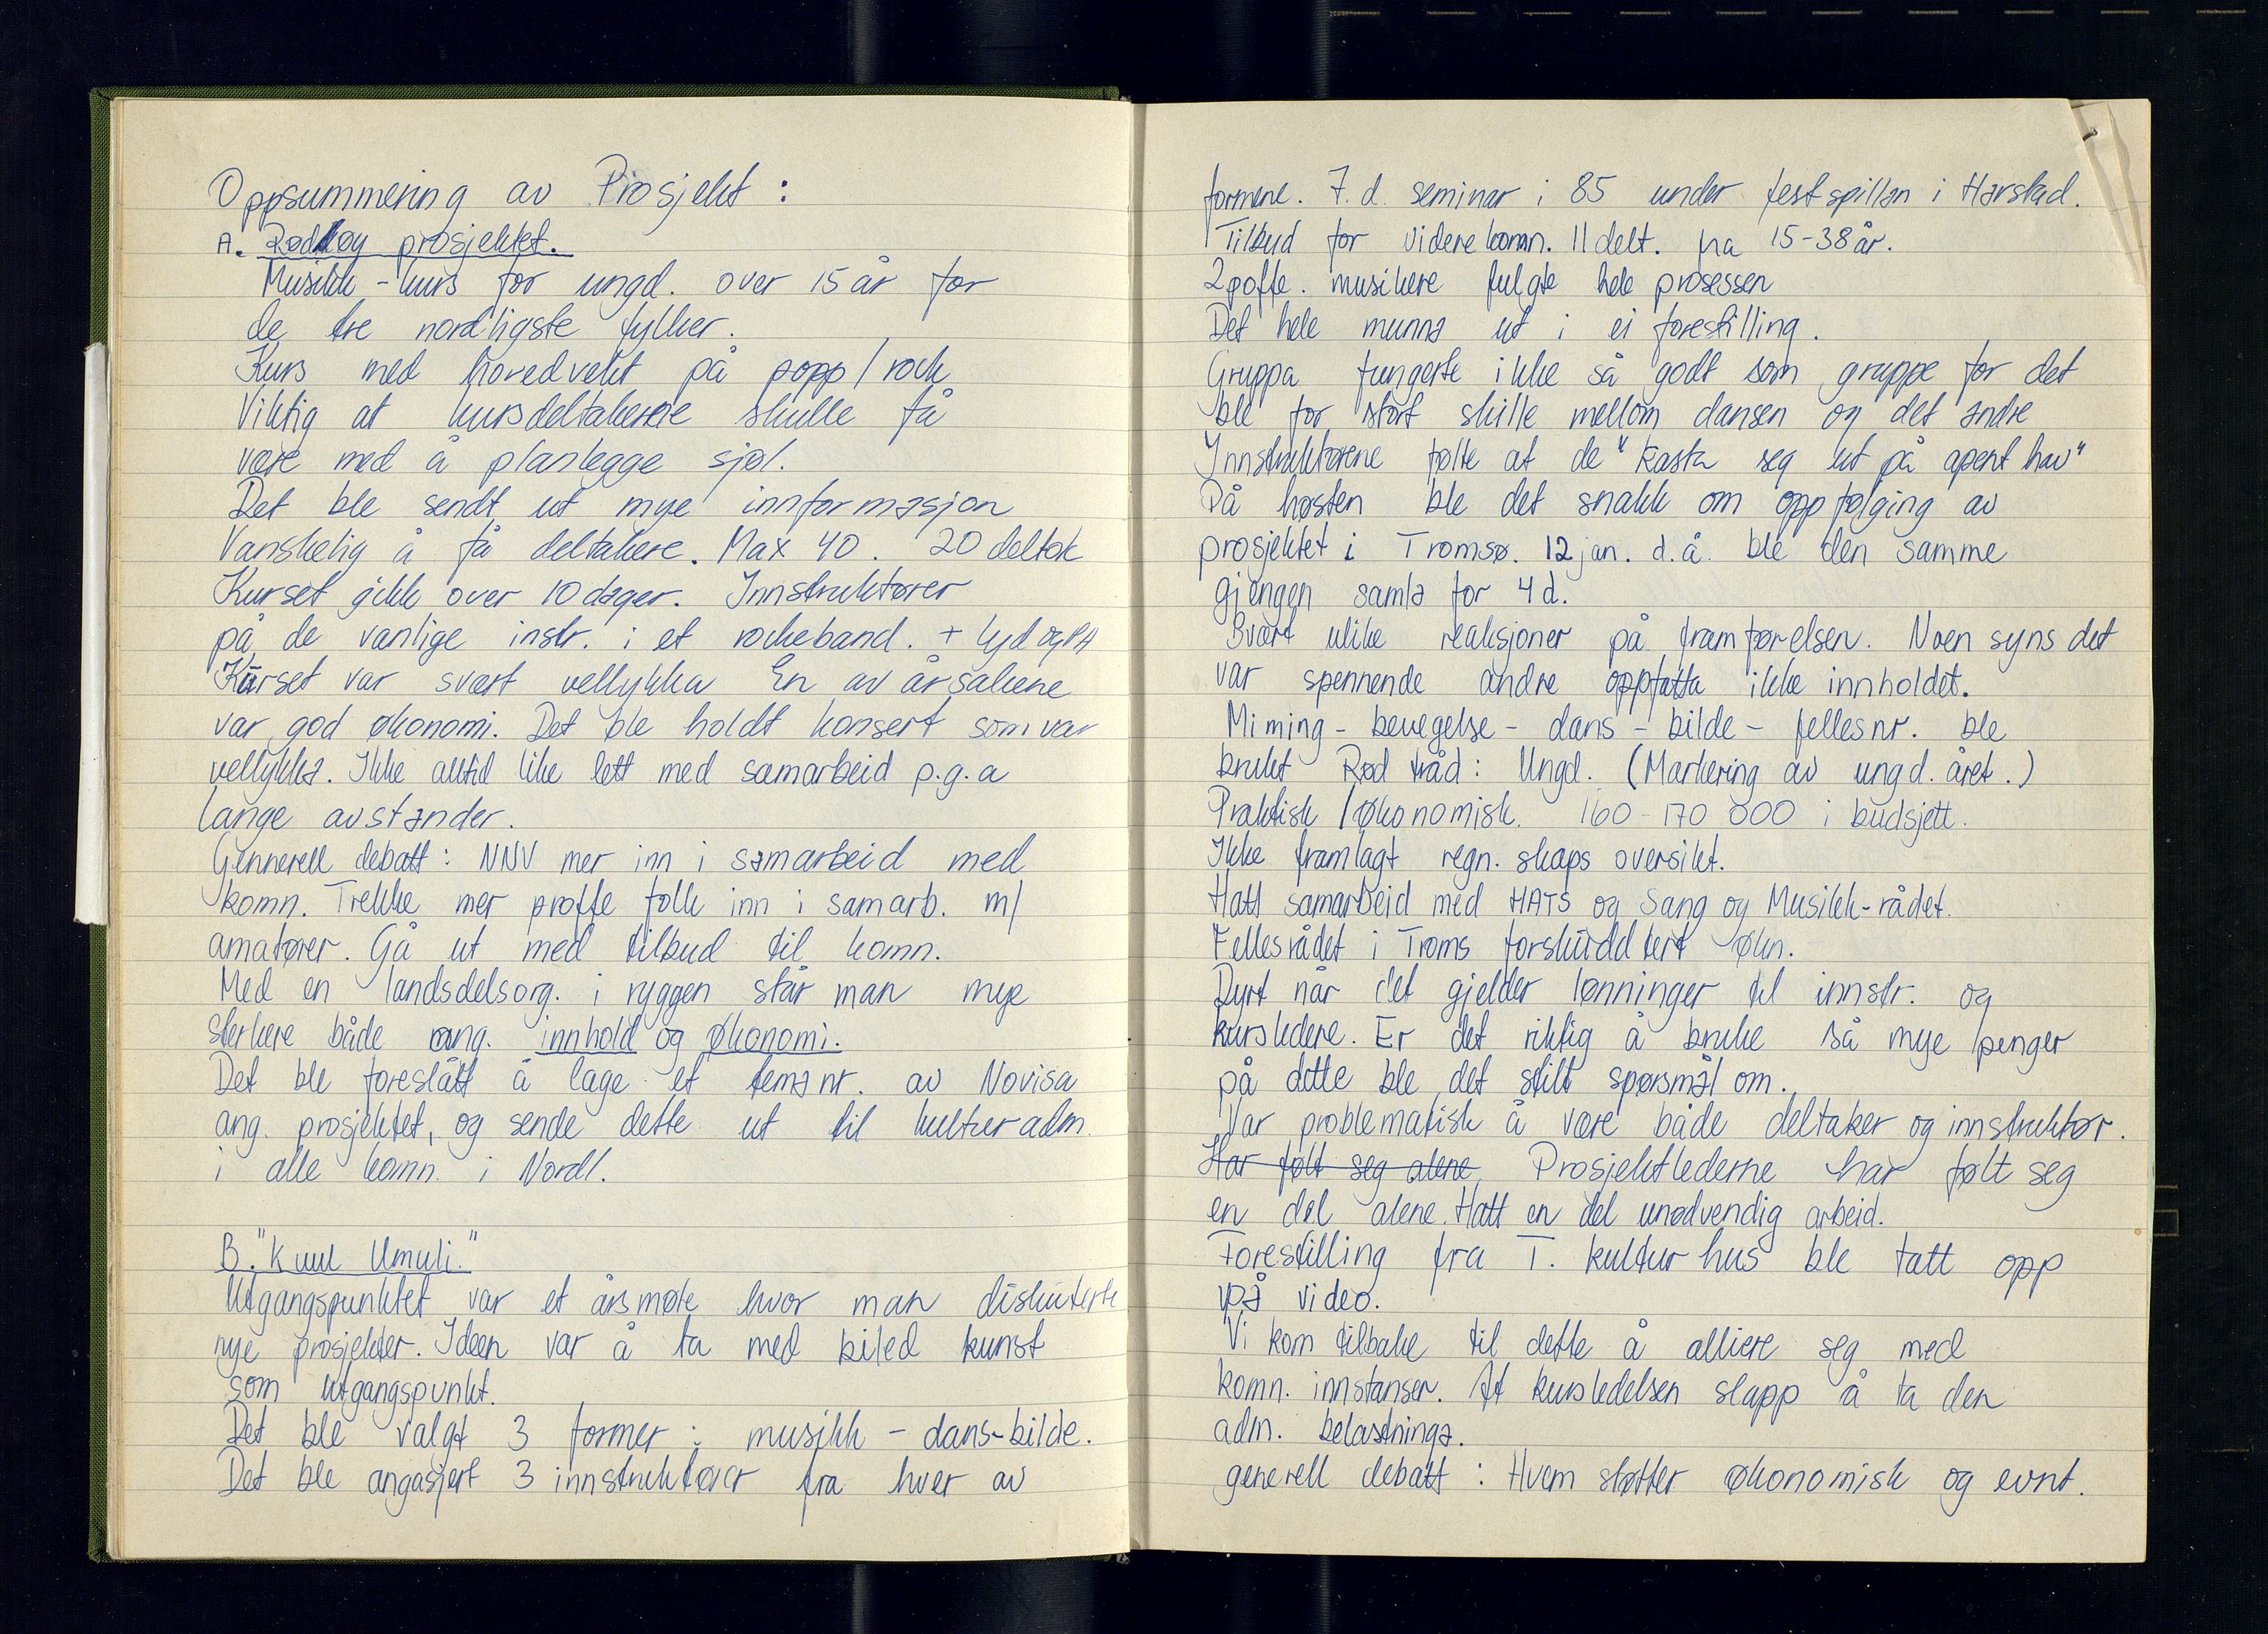 Oppsummering av Prosjekt :
A. Rødøy prosjektet.
Musikk - kurs for ungd. over 15 år for
de tre nordligste fylker.
Kurs med hovedvekt på popp / rock
Viktig at kursdeltakerere skulle få
være med å planlegge sjøl.
Det ble sendt ut mye innformasjon
Vanskelig å få deltakere. Max 40. 20 deltok
Kurset gikk over 10 dager. Innstruktører
på de vanlige instr. i et rockeband. + lyd og PA
Kurset var svært vellykka En av årsakene
var god økonomi. Det ble holdt konsert som var
vellykka. Ikke alltid like lett med samarbeid p.g.a
lange avstander.
Gennerell debatt : NNV mer inn i samarbeid med
komn. Trekke mer proffe folk inn i samarb. m/
amatører. Gå ut med tilbud til komn.
Med en landsdelsorg. i ryggen står man mye
sterkere både ang. innhold og økonomi.
Det ble foreslått å lage et temanr. av Novisa
ang. prosjektet, og sende dette ut til kulturadm.
i alle komn. i Nordl.
B. "Kuul Umuli."
Utgangspunktet var et årsmøte hvor man diskuterte
nye prosjekter. Ideen var å ta med biled kunst
som utgangspunkt.
Det ble valgt 3 former : musikk - dans-bilde.
Det ble angasjert 3 innstruktører fra hver av
formene. 7. d. seminar i 85 under festspillan i Harstad.
Tilbud for viderekomn. 11 delt. fra 15-38 år.
2 poffe. musikere fulgte hele prosessen
Det hele munna ut i ei forestilling.
Gruppa fungerte ikke så godt som gruppe for det
ble for stort skille mellom dansen og det andre
Innstruktørene følte at de "kasta seg ut på apent hav"
På høsten ble det snakk om oppfølging av
prosjektet i Tromsø. 12 jan. d.å. ble den samme
gjengen samla for 4 d.
Svært ulike reaksjoner på framførelsen. Noen syns det
var spennende andre oppfatta ikke innholdet.
Miming - bevegelse - dans - bilde - fellesnr. ble
brukt Rød tråd : Ungd. (Markering av ungd. året.)
Praktisk / økonomisk. 160 - 170 000 i budsjett.
Ikke framlagt regn. skaps oversikt.
Hatt samarbeid med HATS og Sang og Musikk-rådet.
Fellesrådet i Troms forskuddtert økn.
Dyrt når det gjelder lønninger til innstr. og
kursledere. Er det riktig å bruke så mye penger
på dette ble det stilt spørsmål om.
Var problematisk å være både deltaker og innstruktør.
Har følt seg alene. Prosjektlederne har følt seg
en del alene. Hatt en del unødvendig arbeid.
Forestilling fra T. kulturhus ble tatt opp
på video.
Vi kom tilbake til dette å alliere seg med
komn. innstanser. At kursledelsen slapp å ta den
adm. belastninga.
generell debatt : Hvem støtter økonomisk og evnt.